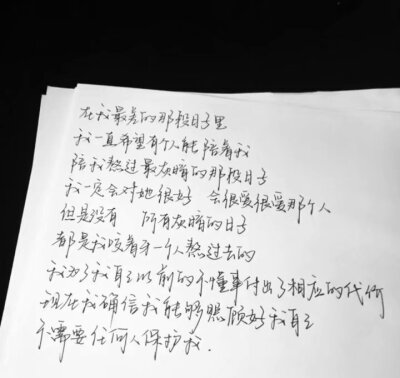 在我最差的那段日子里
我一直希望有个人能陪着我
陪我熬过最灰暗的那段日子
我一定会对她很好 会很爱很爱那个人
但是没有 所有灰暗的日子
都是我咬着牙一个人熬过去的
我为了我自己以前的不懂事付出了相应的代价
现在我确信我能够照顾好我自己
不需要任何人保护我.